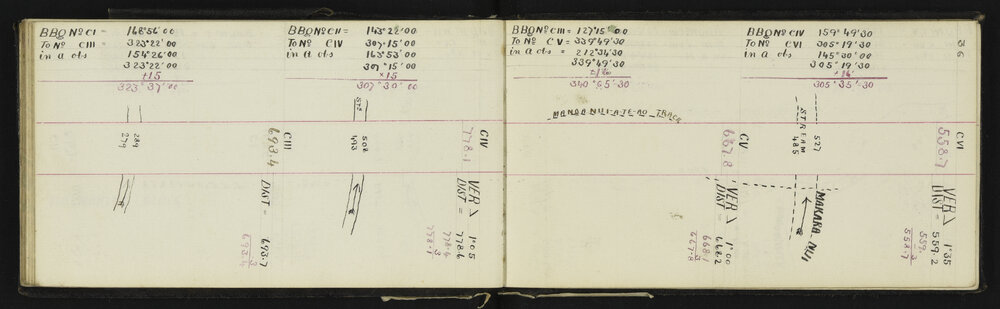 BBQ Nº CI = 148°56'00
To Nº CIII = 323°22'00
in a obs 154°26'00
323°22'00
+15
323°37'00
BBQ Nº CII = 143°22'00
To Nº CIV 307°15'00
in a obs 163°53'00
307°15'00
×15
307°30'00
289
279
CIII
693.4
DIST = 693.7
.3
693.4
572
508
493
CIV
778.1
VER > 1°05
DIST = 778.6
778.4
.3
778.1
BBQ Nº CIII = 127°15'00
To Nº CV = 339°49'30
in a obs = 212°34'30
339°49'30
340°05'30
BBQ Nº CIV 159°49'30
To Nº CVI 305°19'30
in a obs 145°30'00
305°19'30
×16'
305°35'30
36
TRACK
CV
667.8
VER > 1°00
DIST = 668.2
668.1
.3
667.8
STREAM
527
485
MAKARA NUI
CVI
558.7
VER > 1°35
DIST = 559.2
559.
.3
558.7